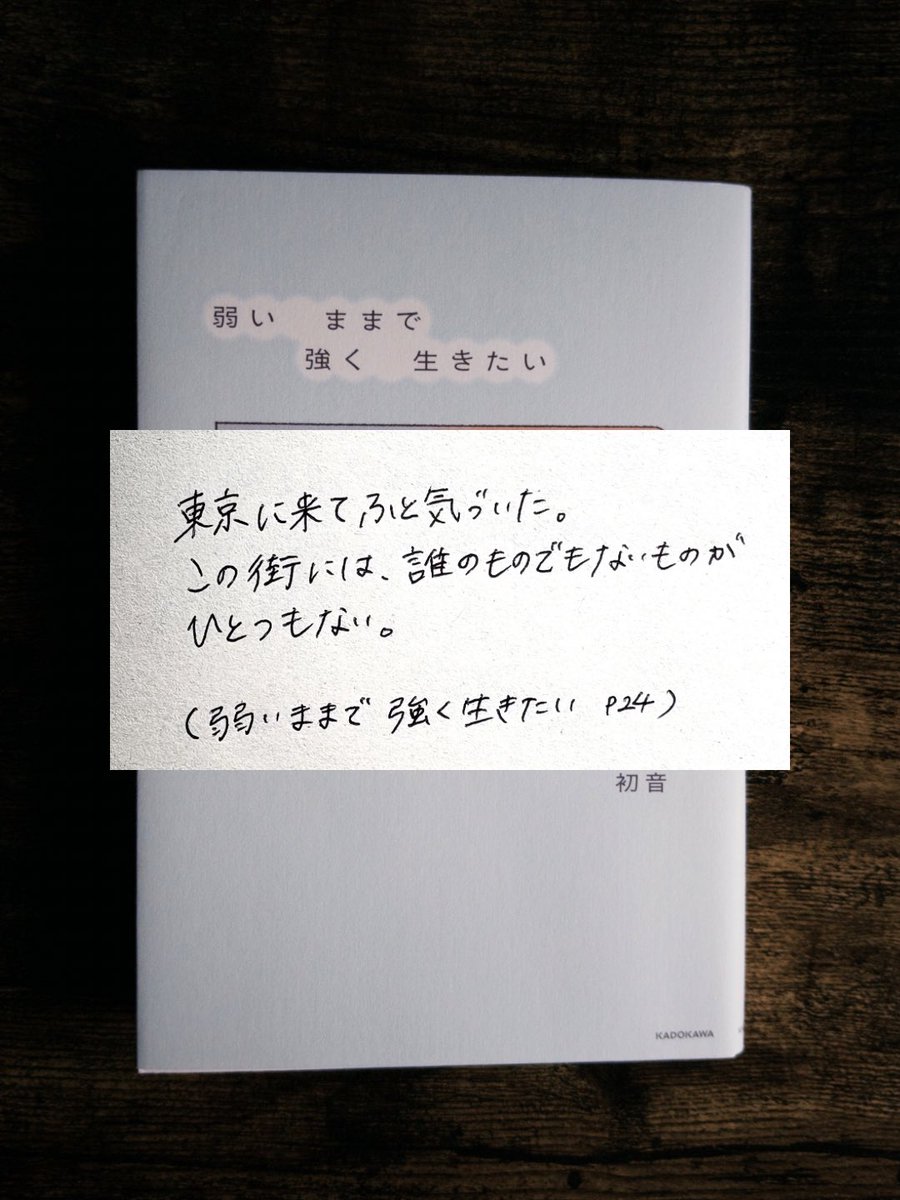 弱い ままで
強く 生きたい
東京に来てふと気づいた。
この街には、誰のものでもないものが
ひとつもない。
(弱いままで 強く生きたい P24)
初音
KADOKAWA